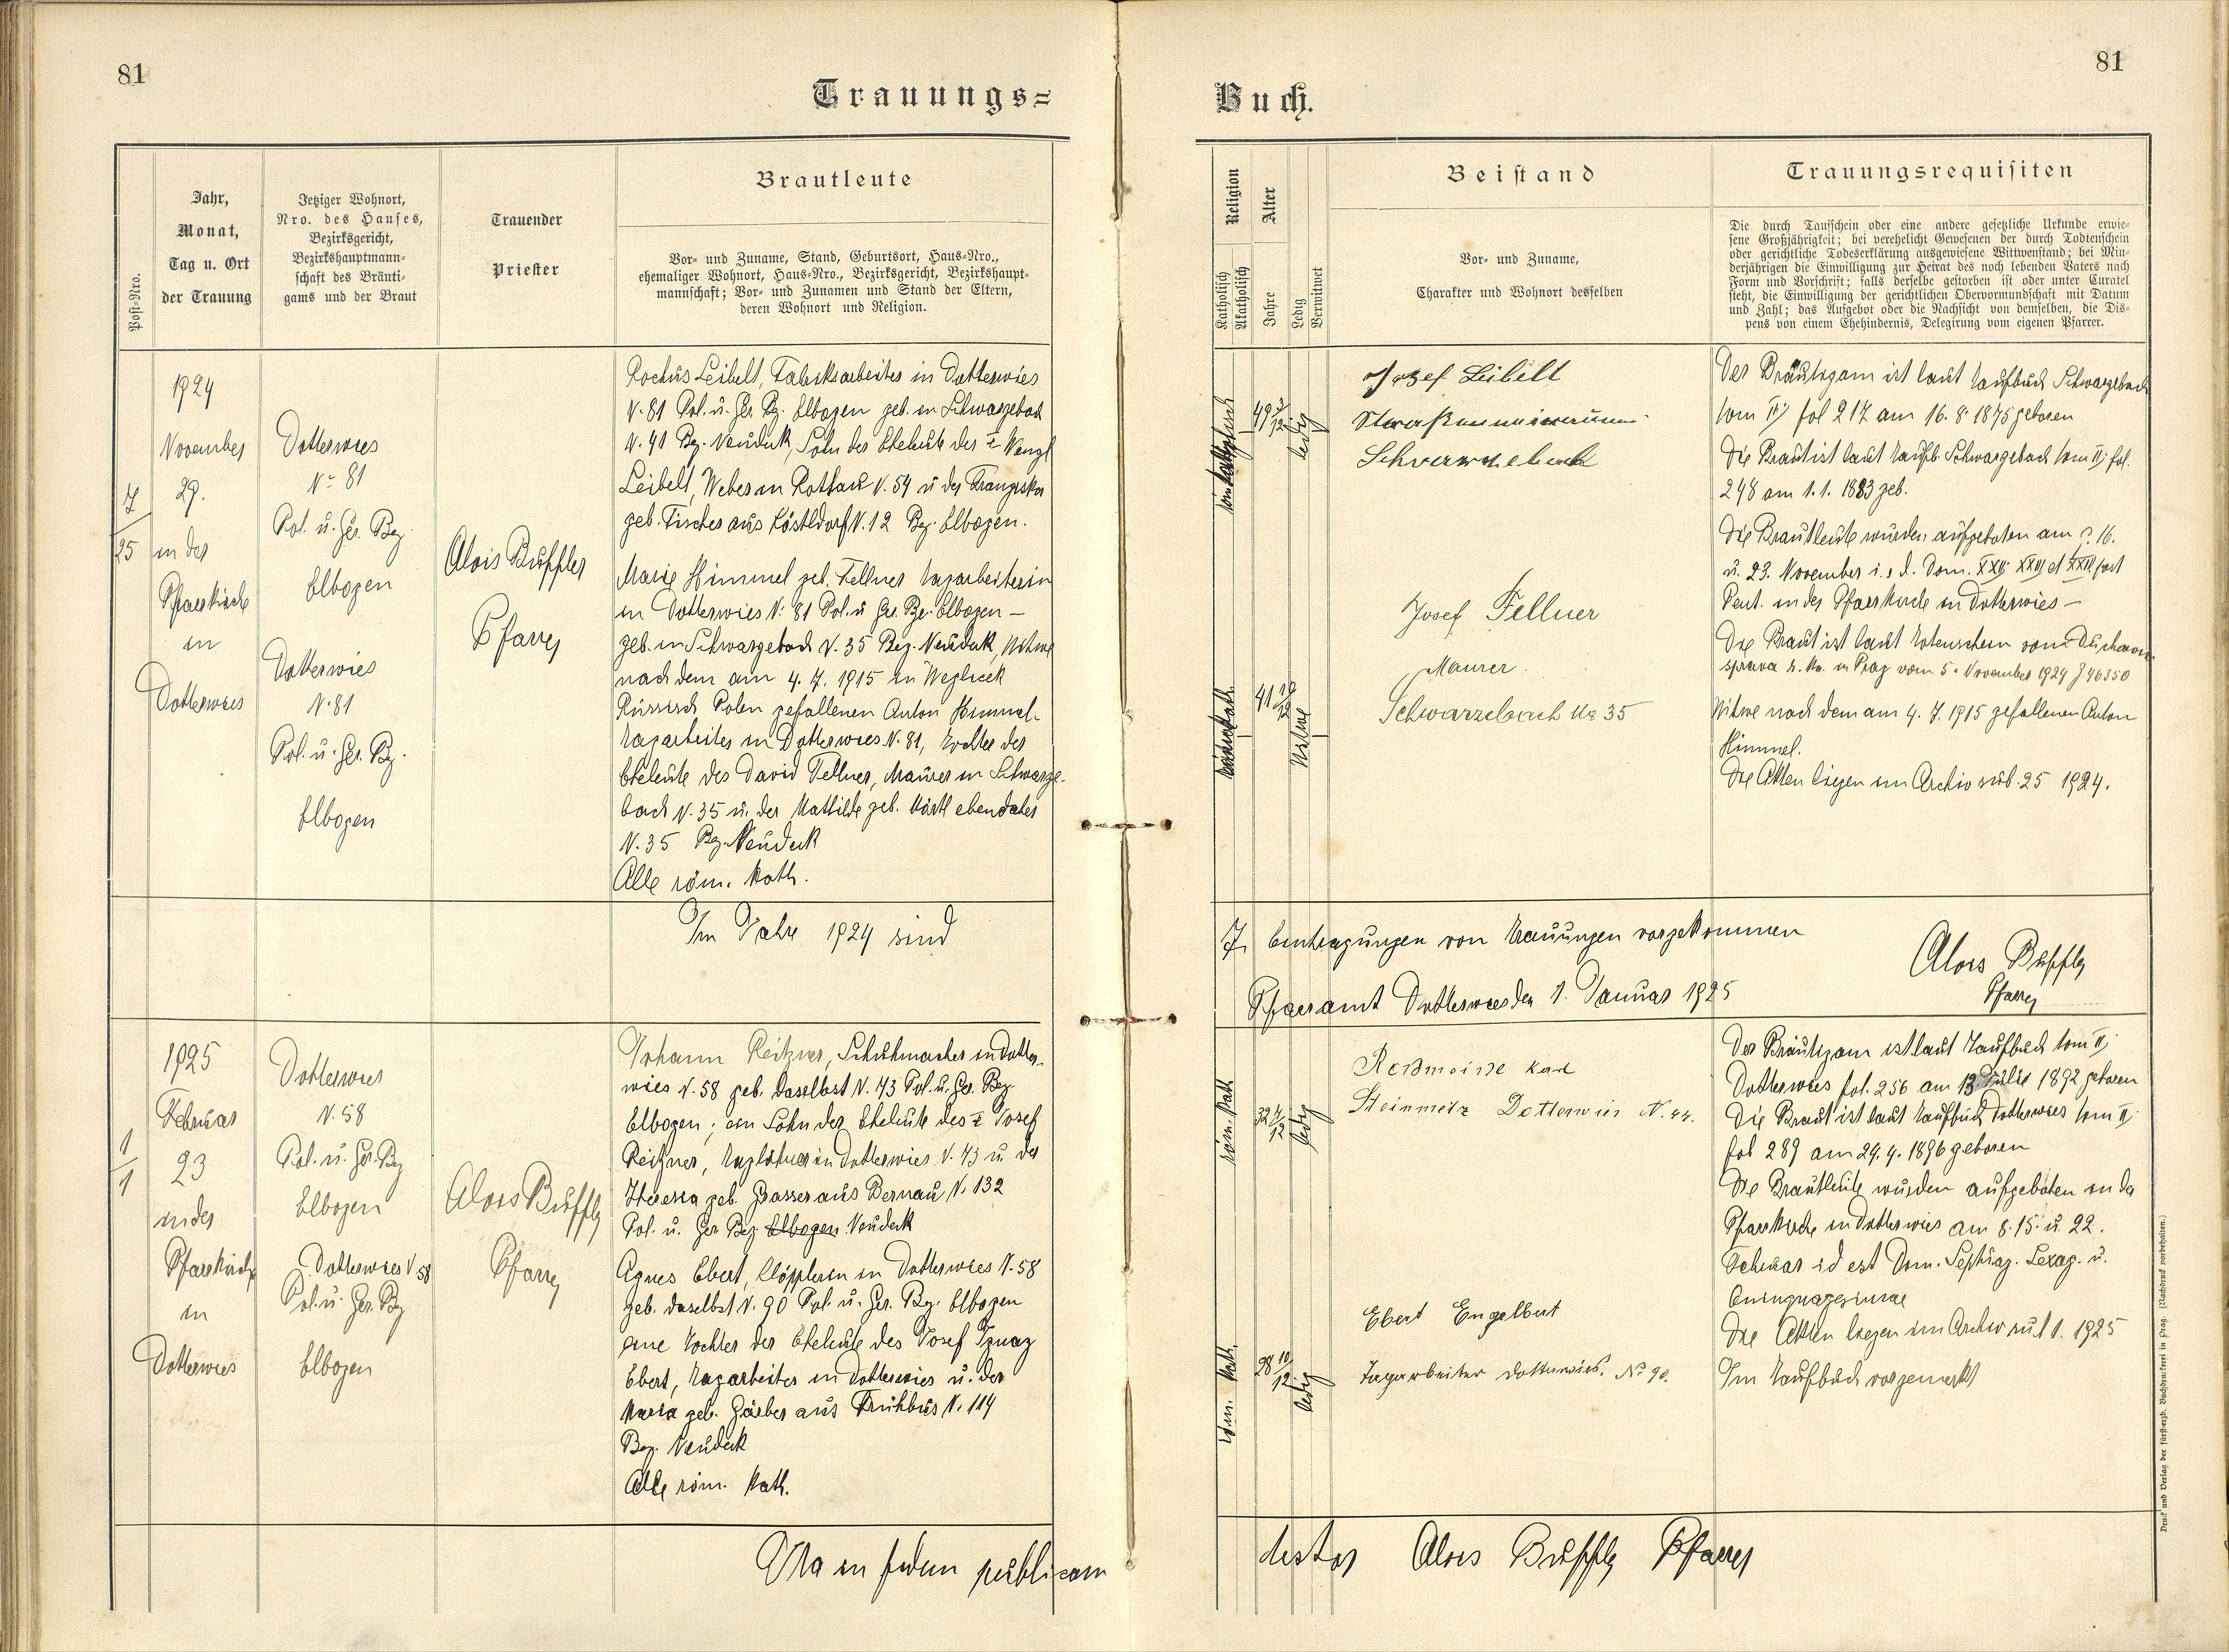 81
Trauungs=
Post-Nro.
Jahr,
Monat,
Tag u. Ort
der Trauung
Jetziger Wohnort,
Nro. des Hauses,
Bezirksgericht,
Bezirkshauptmann-
schaft des Bräuti-
gams und der Braut
Trauender
Priester
Brautleute
Vor- und Zuname, Stand, Geburtsort, Haus-Nro.,
ehemaliger Wohnort, Haus-Nro., Bezirksgericht, Bezirkshaupt-
mannschaft; Vor- und Zunamen und Stand der Eltern,
deren Wohnort und Religion.
7
25
1924
November
29.
in der
Pfarrkirche
in
Dotterwies
Dotterwies
No 81
Pol. u. Ger. Bez
Elbogen
Dotterwies
N. 81
Pol. u. Ger. Bz.
Elbogen
Alois Buffler
Pfarrer
Rochus Leibelt, Fabriksarbeiter in Dotterwies
N. 81 Pol. u. Ger. Bz. Elbogen geb. in Schwarzebach
N. 41 Bz. Neudek, Sohn der Eheleute des Wenzl
Leibelt, Weber in Rothau N. 54 u der Franziska
geb. Fischer aus Köstldorf N. 12 Bez. Elbogen.
Marie Himmel geb. Fellner Tagarbeiterin
in Dotterwies N. 81 Pol. u Ger. Bz. Elbogen —
geb. in Schwarzebach N. 35 Bez. Neudek, Witwe
nach dem am 4. 7. 1915 in
Russisch Polen gefallenen Anton Himmel
Tagarbeiter in Dotterwies N. 81, Tochter der
Eheleute des David Fellner, Maurer in Schwarze-
bach N. 35 u. der Mathilde geb. ebendaher
N. 35 Bez. Neudek
Alle röm. kath.
Im Jahre 1924 sind
1
1
1925
Februar
23
in der
Pfarrkirche
in
Dotterwies
Dotterwies
N. 58
Pol. u. Ger. Bez
Elbogen
Dotterwies N 58
Pol. u. Ger. Bz
Elbogen
Alois Buffler
Pfarrer
Johann Reitzner, Schuhmacher in Dotter-
wies N. 58 geb. daselbst N. 43 Pol. u. Ger. Bez.
Elbogen; ein Sohn der Eheleute des Josef
Reitzner, Taglöhner in Dotterwies N. 43 u. der
Theresia geb. Grasser aus Bernau N. 132
Pol. u. Ger Bez Elbogen Neudek
Agnes Ebert, Klöpplerin in Dotterwies N. 58
geb. daselbst N. 90 Pol. u. Ger. Bez. Elbogen
eine Tochter der Eheleute des Josef Ignaz
Ebert, Tagarbeiter in Dotterwies u. der
Maria geb. Gärber aus Frühbus N. 114
Bez. Neudek
Alle röm. kath.
Ita in fidem publicam
81
Buch.
Religion
Katholisch
Akatholisch
Alter
Jahre
Ledig
Verwitwet
Beistand
Vor- und Zuname,
Charakter und Wohnort desselben
Trauungsrequisiten
Die durch Taufschein oder eine andere gesetzliche Urkunde erwie-
sene Großjährigkeit; bei verehelicht Gewesenen der durch Todtenschein
oder gerichtliche Todeserklärung ausgewiesene Wittwenstand; bei Min-
derjährigen die Einwilligung zur Heirat des noch lebenden Vaters nach
Form und Vorschrift; falls derselbe gestorben ist oder unter Curatel
steht, die Einwilligung der gerichtlichen Obervormundschaft mit Datum
und Zahl; das Aufgebot oder die Nachsicht von demselben, die Dis-
pens von einem Ehehindernis, Delegirung vom eigenen Pfarrer.
49 3/12
ledig
Josef Leibelt
Schwarzebach
41 10/12
Witwe
Josef Fellner
Maurer.
Schwarzebach No 35
Der Bräutigam ist laut Taufbuch Schwarzebach
tom II fol 217 am 16. 8. 1875 geboren
Die Braut ist laut Taufb. Schwarzebach tom II. fol.
248 am 1. 1. 1883 geb.
Die Brautleute wurden aufgeboten am 16.
u. 23. November i. e d. Dom. XXII XXIII et XXIV post
Pent. in der Pfarrkirche in Dotterwies —
Die Braut ist laut Totenschein vom Duchovni
sprava in Prag vom 5. November 1924 J 46350
Witwe nach dem am 4. 7. 1915 gefallenen Anton
Himmel.
Die Akten liegen im Archiv sub. 25 1924.
7 Eintragungen von Trauungen vorgekommen
Pfarramt Dotterwies den 1. Januar 1925
Alois Buffler
Pfarrer
röm. kath
32 4/12
ledig
Karl
Steinmetz Dotterwies N. 44.
röm. kath.
28 10/12
ledig
Ebert Engelbert
Tagarbeiter Dotterwies. No 90.
Der Bräutigam ist laut Taufbuch tom II
Dotterwies fol. 256 am 13. Julie 1892 geboren
Die Braut ist laut Taufbuch Dotterwies tom II
fol 289 am 24. 4. 1896 geboren
Die Brautleute wurden aufgeboten in der
Pfarrkirche in Dotterwies am 8. 15. u. 22.
Februar id est Dom. Septuag. Sexag. u.
Quinquagesimae
Die Akten liegen im Archiv sub 1. 1925
Im Taufbuch vorgemerkt
testor Alois Buffler Pfarrer
Druck und Verlag der fürsterzb. Buchdruckerei in Prag. (Nachdruck vorbehalten.)